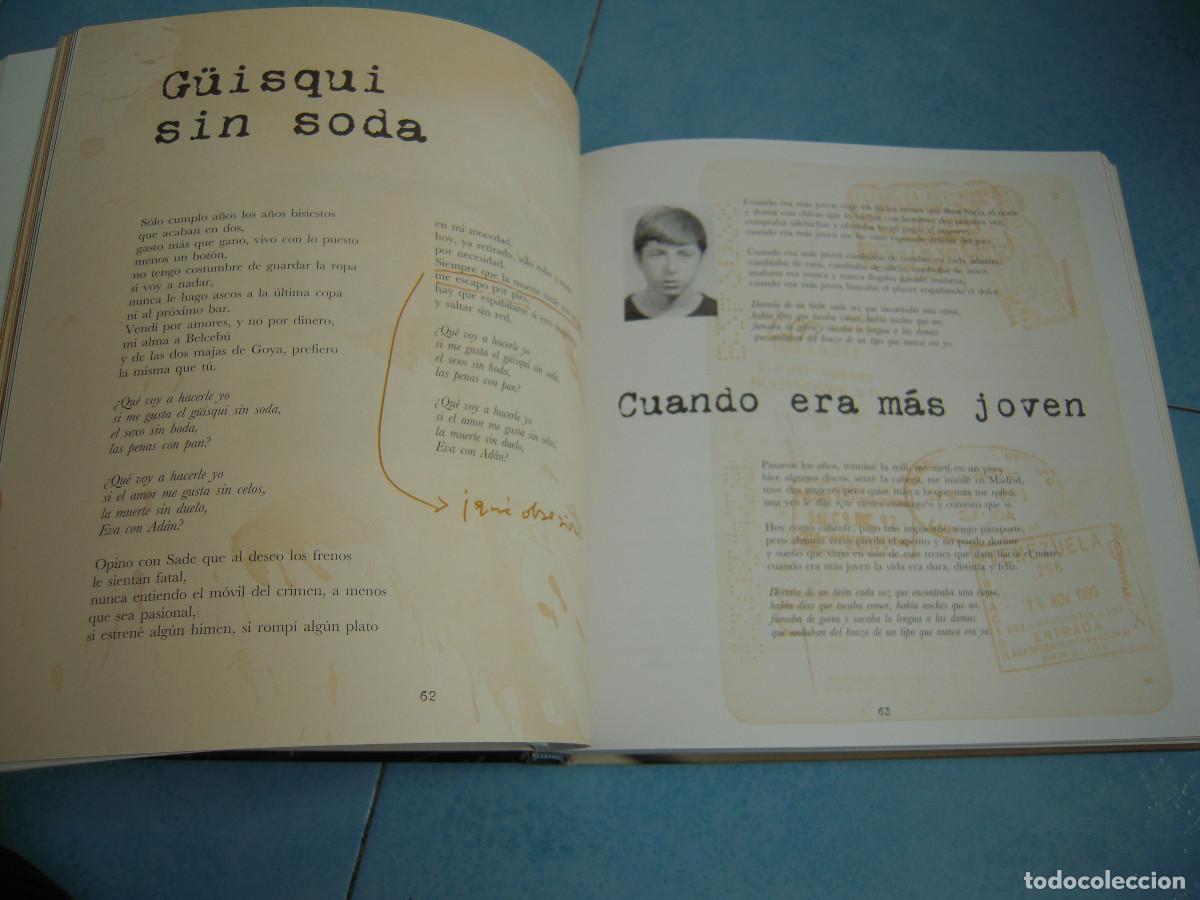 Güisqui
sin soda
Sólo cumplo años los años bisiestos
que acaban en dos,
gasto más que gano, vivo con lo puesto
menos un botón,
no tengo costumbre de guardar la ropa
si voy a nadar,
nunca le hago ascos a la última copa
ni al próximo bar.
Vendí por amores, y no por dinero,
mi alma a Belcebú
y de las dos majas de Goya, prefiero
la misma que tú.
¿Qué voy a hacerle yo
si me gusta el güisqui sin soda,
el sexo sin boda,
las penas con pan?
¿Qué voy a hacerle yo
si el amor me gusta sin celos,
la muerte sin duelo,
Eva con Adán?
Opino con Sade que al deseo los frenos
le sientan fatal,
nunca entiendo el móvil del crimen, a menos
que sea pasional,
si estrené algún himen, si rompí algún plato
en mi mocedad,
hoy, ya retirado, sólo robo y mato
por necesidad.
Siempre que la muerte viene
me escapo por pies,
hay que espabilarse si eres
y saltar sin red.
¿Qué voy a hacerle yo
si me gusta el güisqui sin soda,
el sexo sin boda,
las penas con pan?
¿Qué voy a hacerle yo
si el amor me gusta sin celos,
la muerte sin duelo,
Eva con Adán?
¡qué
62
Cuando era más joven viajé en sucios trenes que iban hacia el norte
y dormí con chicas que lo hacían con hombres por primera vez,
compraba salchichas y olvidaba luego pagar el importe,
cuando era más joven me he visto esposado delante del juez.
Cuando era más joven cambiaba de nombre en cada aduana,
cambiaba de casa, cambiaba de oficio, cambiaba de amor,
mañana era nunca y nunca llegaba pasado mañana,
cuando era más joven buscaba el placer engañando el dolor.
Dormía de un tirón cada vez que encontraba una cama,
había días que tocaba comer, había noches que no,
fumaba de gorra y sacaba la lengua a las damas
que andaban del brazo de un tipo que nunca era yo.
Cuando era más joven
Pasaron los años, terminé la mili, me metí en un piso,
hice algunos discos, senté la cabeza, me instalé en Madrid,
tuve dos mujeres pero quise más a la que más me quiso,
una vez le dije «¿te vienes conmigo?» y contestó que sí.
Hoy como caliente, pago mis impuestos, tengo pasaporte,
pero algunas veces pierdo el apetito y no puedo dormir
y sueño que viajo en uno de esos trenes que iban hacia el norte,
cuando era más joven la vida era dura, distinta y feliz.
Dormía de un tirón cada vez que encontraba una cama,
había días que tocaba comer, había noches que no,
fumaba de gorra y sacaba la lengua a las damas
que andaban del brazo de un tipo que nunca era yo.
VENEZUELA
14 NOV
ENTRADA
63
todocoleccion